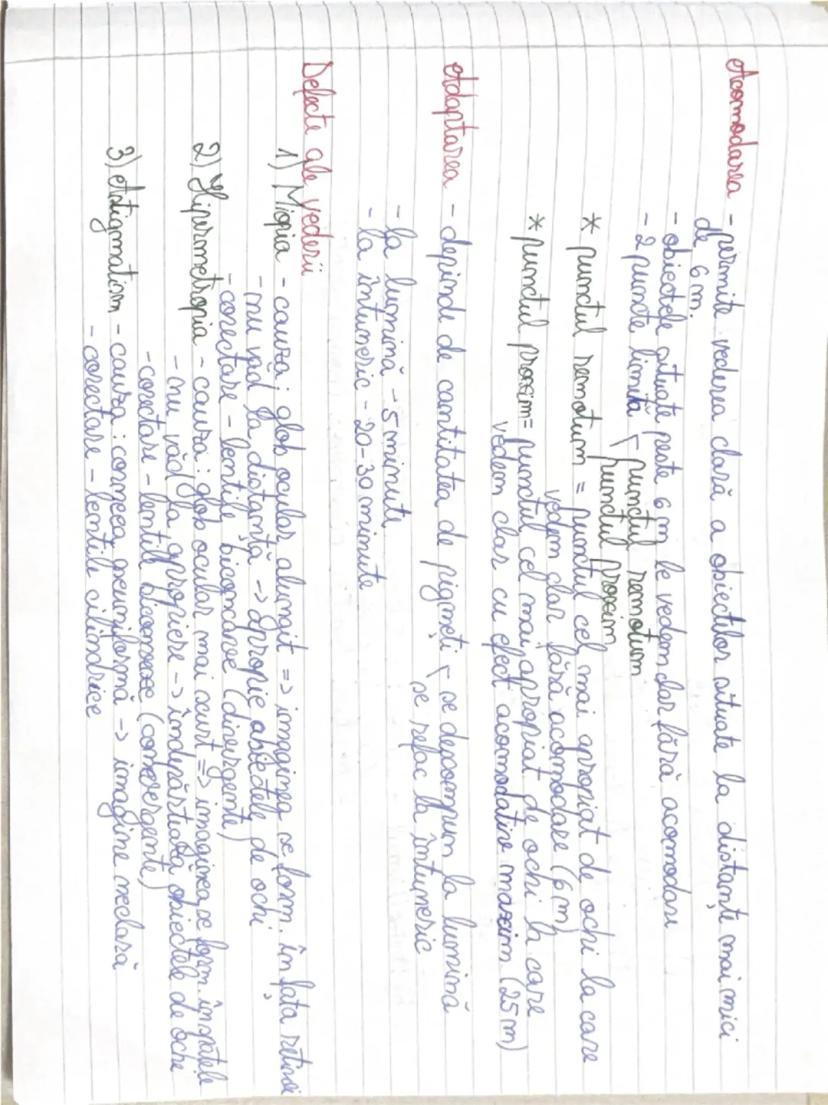 Acomodarea - permite vederea clară a obiectelor situate la distanțe mai mici
de 6 m.
- obiectele situate peste 6 m le vedem clar fără acomodare
- 2 puncte limită < punctul remotum
punctul proxim
* punctul remotum = punctul cel mai apropiat de ochi la care
vedem clar fără acomodare (6 m)
* punctul proxim = punctul cel mai apropiat de ochi la care
vedem clar cu efect acomodativ maxim (25 m)
Adaptarea - depinde de cantitatea de pigmeți < se depompun la lumină
se refac la întuneric
- la lumină - 5 minute
- la întuneric - 20-30 minute
Defecte ale vederii
1) Miopia - cauza: glob ocular alungit => imaginea se form. în fața retinei
- nu văd la distanță -> apropie obiectele de ochi
- corectare - lentile biconcave (divergente)
2) Hipermetropia - cauza: glob ocular mai scurt => imaginea se form. în spatele
- nu văd la apropiere -> îndepărtează obiectele de ochi
- corectare - lentile biconvexe (convergente)
3) Astigmatism - cauza: corneea neuniformă -> imagine neclară
- corectare - lentile cilindrice